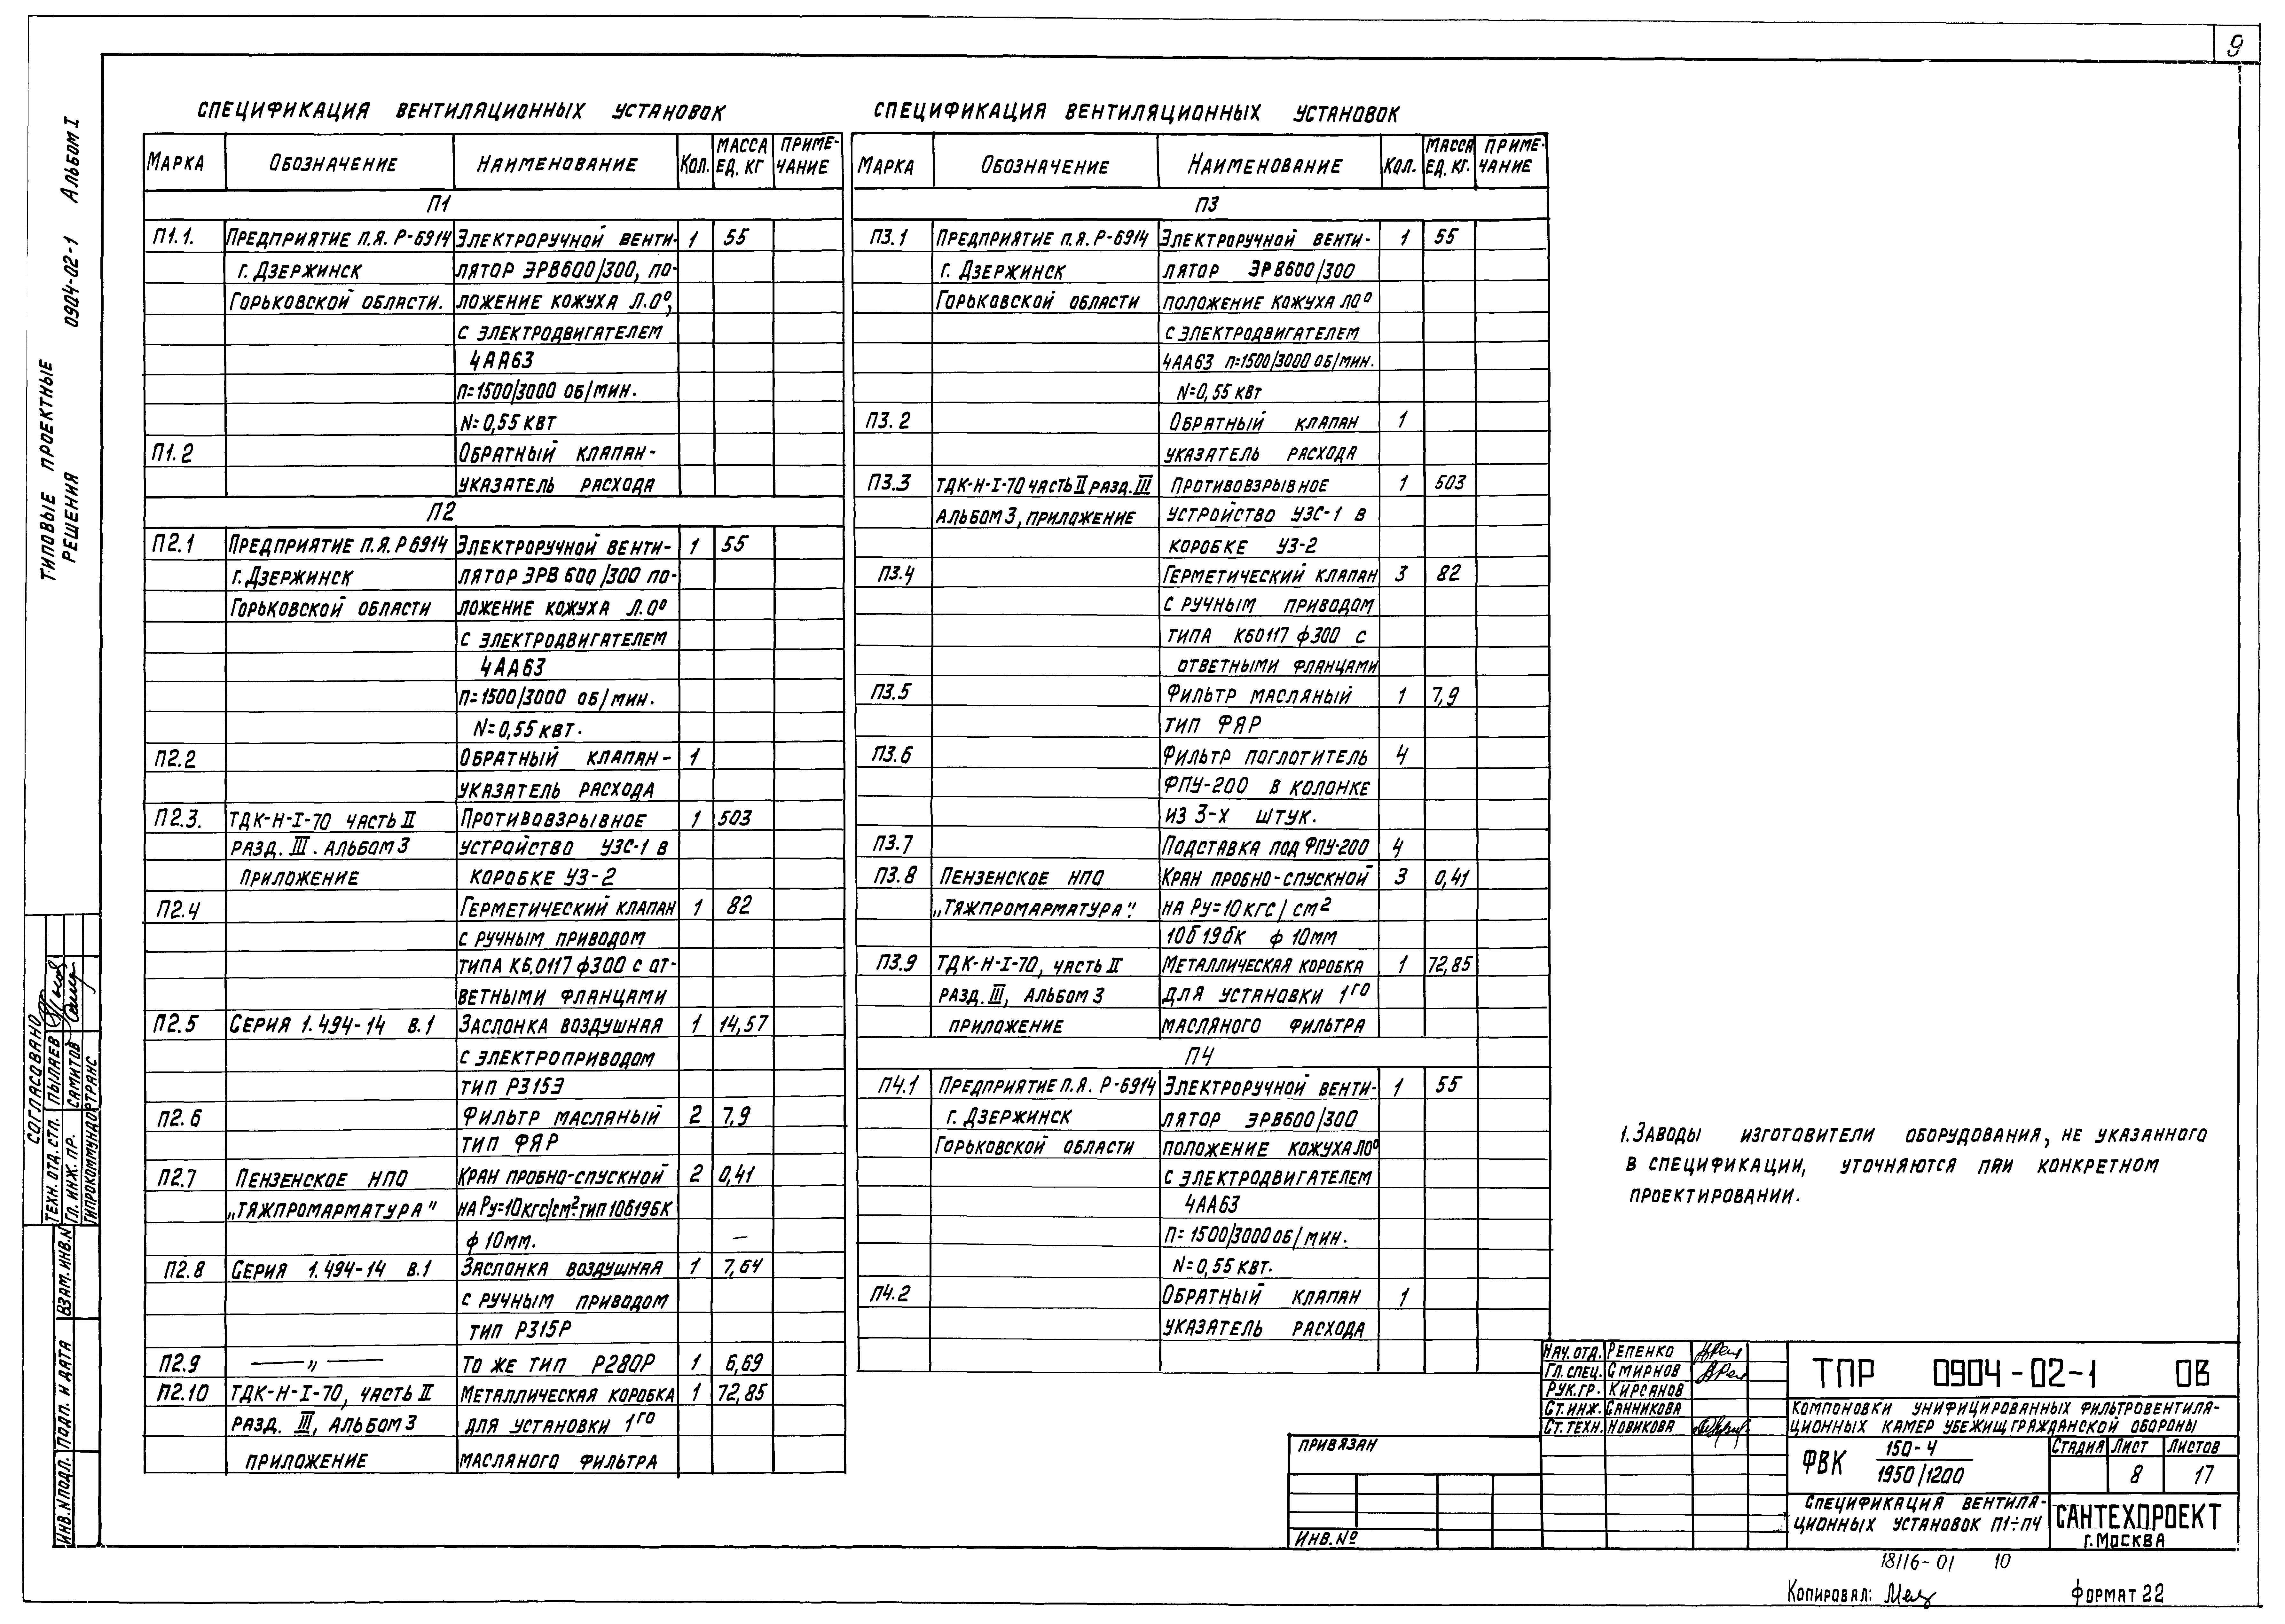 9
СПЕЦИФИКАЦИЯ ВЕНТИЛЯЦИОННЫХ УСТАНОВОК
МАРКА ОБОЗНАЧЕНИЕ НАИМЕНОВАНИЕ КОЛ. МАССА ЕД. КГ ПРИМЕ-ЧАНИЕ
П1
П1.1. ПРЕДПРИЯТИЕ П.Я. Р-6914 ЭЛЕКТРОРУЧНОЙ ВЕНТИ- 1 55
г. ДЗЕРЖИНСК ЛЯТОР ЭРВ600/300, ПО-
ГОРЬКОВСКОЙ ОБЛАСТИ. ЛОЖЕНИЕ КОЖУХА Л.0°,
С ЭЛЕКТРОДВИГАТЕЛЕМ
4АА63
п=1500/3000 ОБ/МИН.
N=0,55 КВТ
П1.2 ОБРАТНЫЙ КЛАПАН-
УКАЗАТЕЛЬ РАСХОДА
П2
П2.1 ПРЕДПРИЯТИЕ П.Я. Р 6914 ЭЛЕКТРОРУЧНОЙ ВЕНТИ- 1 55
г. ДЗЕРЖИНСК ЛЯТОР ЭРВ 600/300 ПО-
ГОРЬКОВСКОЙ ОБЛАСТИ ЛОЖЕНИЕ КОЖУХА Л.0°
С ЭЛЕКТРОДВИГАТЕЛЕМ
4АА63
п=1500/3000 ОБ/МИН.
N=0,55 КВТ.
П2.2 ОБРАТНЫЙ КЛАПАН- 1
УКАЗАТЕЛЬ РАСХОДА
П2.3. ТДК-Н-I-70 ЧАСТЬ II ПРОТИВОВЗРЫВНОЕ 1 503
РАЗД. III. АЛЬБОМ 3 УСТРОЙСТВО УЗС-1 В
ПРИЛОЖЕНИЕ КОРОБКЕ УЗ-2
П2.4 ГЕРМЕТИЧЕСКИЙ КЛАПАН 1 82
С РУЧНЫМ ПРИВОДОМ
ТИПА КБ.0117 ф300 С ОТ-
ВЕТНЫМИ ФЛАНЦАМИ
П2.5 СЕРИЯ 1.494-14 В.1 ЗАСЛОНКА ВОЗДУШНАЯ 1 14,57
С ЭЛЕКТРОПРИВОДОМ
ТИП Р315Э
П2.6 ФИЛЬТР МАСЛЯНЫЙ 2 7,9
ТИП ФЯР
П2.7 ПЕНЗЕНСКОЕ НПО КРАН ПРОБНО-СПУСКНОЙ 2 0,41
„ТЯЖПРОМАРМАТУРА" НА Ру=10кгс/см² ТИП 10Б19БК
ф 10мм. —
П2.8 СЕРИЯ 1.494-14 В.1 ЗАСЛОНКА ВОЗДУШНАЯ 1 7,64
С РУЧНЫМ ПРИВОДОМ
ТИП Р315Р
П2.9 —„— ТО ЖЕ ТИП Р280Р 1 6,69
П2.10 ТДК-Н-I-70, ЧАСТЬ II МЕТАЛЛИЧЕСКАЯ КОРОБКА 1 72,85
РАЗД. III, АЛЬБОМ 3 ДЛЯ УСТАНОВКИ 1го
ПРИЛОЖЕНИЕ МАСЛЯНОГО ФИЛЬТРА
СПЕЦИФИКАЦИЯ ВЕНТИЛЯЦИОННЫХ УСТАНОВОК
МАРКА ОБОЗНАЧЕНИЕ НАИМЕНОВАНИЕ КОЛ. МАССА ЕД. КГ. ПРИМЕ-ЧАНИЕ
П3
П3.1 ПРЕДПРИЯТИЕ П.Я. Р-6914 ЭЛЕКТРОРУЧНОЙ ВЕНТИ- 1 55
г. ДЗЕРЖИНСК ЛЯТОР ЭРВ600/300
ГОРЬКОВСКОЙ ОБЛАСТИ ПОЛОЖЕНИЕ КОЖУХА Л0°
С ЭЛЕКТРОДВИГАТЕЛЕМ
4АА63 п=1500/3000 ОБ/МИН.
N=0,55 КВТ
П3.2 ОБРАТНЫЙ КЛАПАН 1
УКАЗАТЕЛЬ РАСХОДА
П3.3 ТДК-Н-I-70 ЧАСТЬ II РАЗД. III ПРОТИВОВЗРЫВНОЕ 1 503
АЛЬБОМ 3, ПРИЛОЖЕНИЕ УСТРОЙСТВО УЗС-1 В
КОРОБКЕ УЗ-2
П3.4 ГЕРМЕТИЧЕСКИЙ КЛАПАН 3 82
С РУЧНЫМ ПРИВОДОМ
ТИПА КБ0117 ф300 С
ОТВЕТНЫМИ ФЛАНЦАМИ
П3.5 ФИЛЬТР МАСЛЯНЫЙ 1 7,9
ТИП ФЯР
П3.6 ФИЛЬТР ПОГЛОТИТЕЛЬ 4
ФПУ-200 В КОЛОНКЕ
ИЗ 3-Х ШТУК.
П3.7 ПОДСТАВКА ПОД ФПУ-200 4
П3.8 ПЕНЗЕНСКОЕ НПО КРАН ПРОБНО-СПУСКНОЙ 3 0,41
„ТЯЖПРОМАРМАТУРА". НА Ру=10кгс/см²
10Б19БК ф 10мм
П3.9 ТДК-Н-I-70, ЧАСТЬ II МЕТАЛЛИЧЕСКАЯ КОРОБКА 1 72,85
РАЗД. III, АЛЬБОМ 3 ДЛЯ УСТАНОВКИ 1го
ПРИЛОЖЕНИЕ МАСЛЯНОГО ФИЛЬТРА
П4
П4.1 ПРЕДПРИЯТИЕ П.Я. Р-6914 ЭЛЕКТРОРУЧНОЙ ВЕНТИ- 1 55
г. ДЗЕРЖИНСК ЛЯТОР ЭРВ600/300
ГОРЬКОВСКОЙ ОБЛАСТИ ПОЛОЖЕНИЕ КОЖУХА Л0°
С ЭЛЕКТРОДВИГАТЕЛЕМ
4АА63
п=1500/3000 ОБ/МИН.
N=0,55 КВТ.
П4.2 ОБРАТНЫЙ КЛАПАН 1
УКАЗАТЕЛЬ РАСХОДА
1. ЗАВОДЫ ИЗГОТОВИТЕЛИ ОБОРУДОВАНИЯ, НЕ УКАЗАННОГО
В СПЕЦИФИКАЦИИ, УТОЧНЯЮТСЯ ПРИ КОНКРЕТНОМ
ПРОЕКТИРОВАНИИ.
НАЧ. ОТД. РЕПЕНКО
ГЛ. СПЕЦ. СМИРНОВ
РУК. ГР. КИРСАНОВ
СТ. ИНЖ. САННИКОВА
СТ. ТЕХН. НОВИКОВА
ТПР 0904-02-1 ОВ
КОМПОНОВКИ УНИФИЦИРОВАННЫХ ФИЛЬТРОВЕНТИЛЯ-
ЦИОННЫХ КАМЕР УБЕЖИЩ ГРАЖДАНСКОЙ ОБОРОНЫ
ФВК 150-4
1950/1200
СТАДИЯ ЛИСТ ЛИСТОВ
8 17
СПЕЦИФИКАЦИЯ ВЕНТИЛЯ-
ЦИОННЫХ УСТАНОВОК П1÷П4
САНТЕХПРОЕКТ
г. МОСКВА
ПРИВЯЗАН
ИНВ. №
18116-01 10
КОПИРОВАЛ:
ФОРМАТ 22
ТИПОВЫЕ ПРОЕКТНЫЕ
РЕШЕНИЯ 0904-02-1 АЛЬБОМ I
СОГЛАСОВАНО
ТЕХН. ОТД. СТП. ПЫЛАЕВ
ГЛ. ИНЖ. ПР. САМИТОВ
ГИПРОКОММУНДОРТРАНС
ВЗАМ. ИНВ. N
ПОДП. И ДАТА
ИНВ. N ПОДЛ.